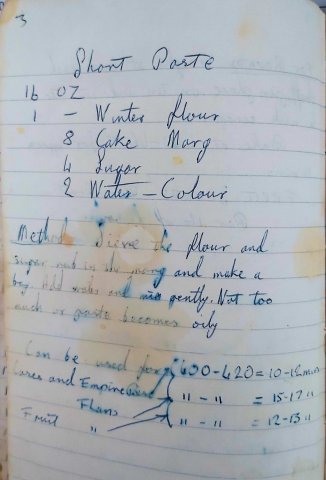 3
Short Paste
lb OZ
1 - Winter flour
8 Cake Marg
4 Sugar
2 Water - Colour
Method Sieve the flour and
sugar rub in the marg and make a
bay. Add water and mix gently. Not too
much or paste becomes oily
Can be used for 400-420 = 10-12 mins
and Empire " - " = 15-17 "
Flans
Fruit " " - " = 12-13 "